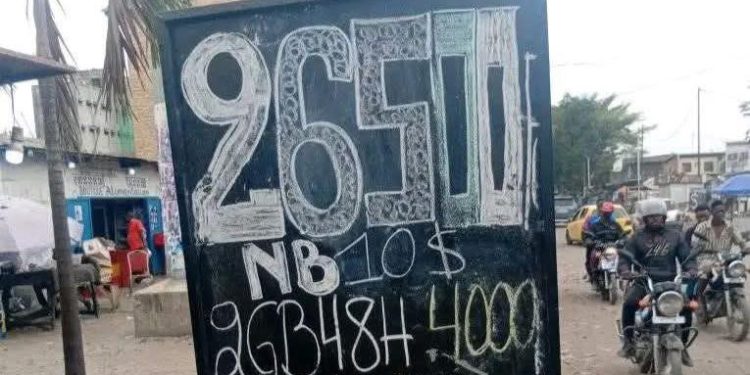 26500
NB 10$
2GB 48H 4000
Alimentation